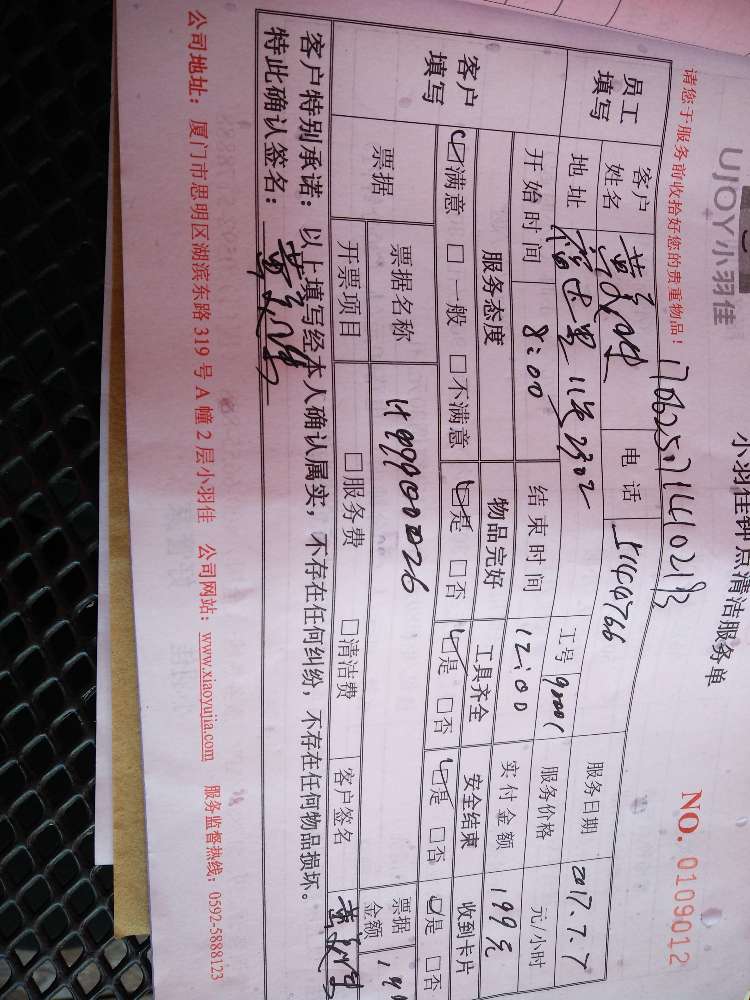 UJOY小羽佳
小羽佳钟点清洁服务单
NO. 0109012
请您于服务前收拾好您的贵重物品！
员工填写
客户姓名 黄 电话 工号 服务日期 2017.7.7
地址 2302 服务价格 元/小时
开始时间 8:00 结束时间 12:00 实付金额 199元
客户填写
服务态度 物品完好 工具齐全 安全结束 收到卡片
☑满意 □一般 □不满意 ☑是 □否 ☑是 □否 ☑是 □否 ☑是 □否
票据 票据名称 票据金额
开票项目 □服务费 □清洁费 客户签名
客户特别承诺：以上填写经本人确认属实，不存在任何纠纷，不存在任何物品损坏。
特此确认签名：
公司地址：厦门市思明区湖滨东路 319 号 A 幢 2 层小羽佳 公司网站：www.xiaoyujia.com 服务监督热线：0592-5888123